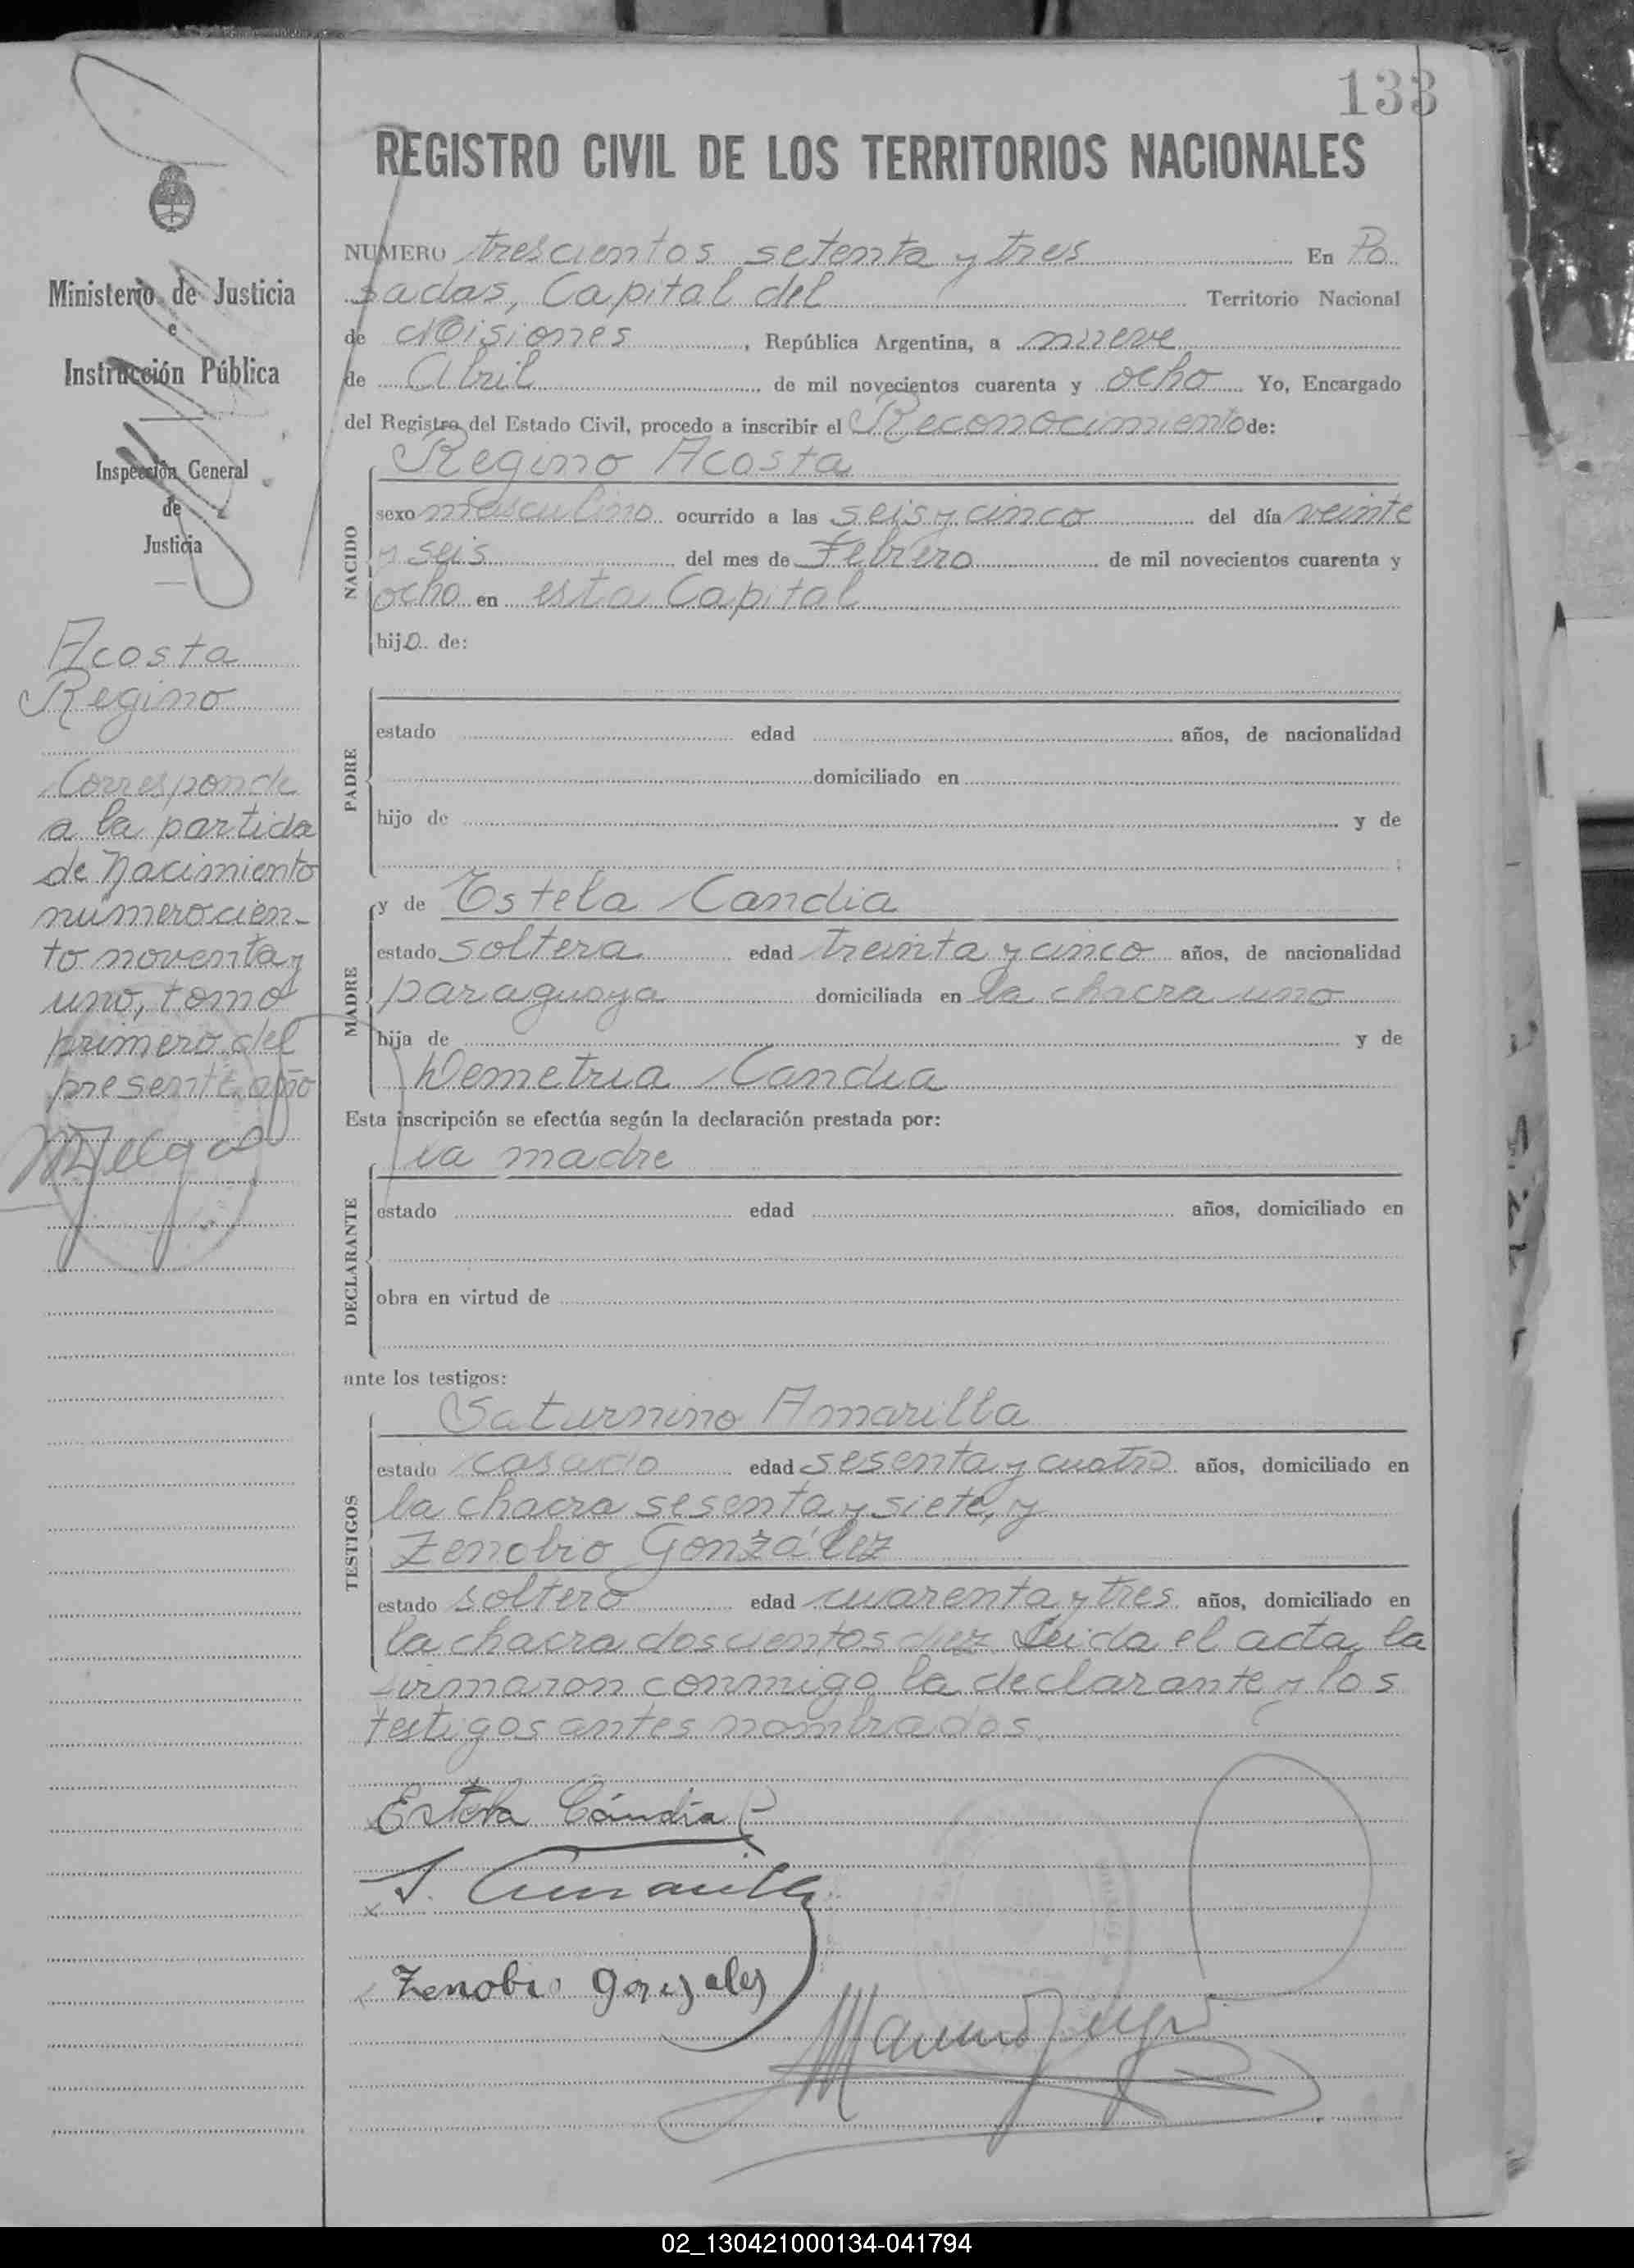 133
REGISTRO CIVIL DE LOS TERRITORIOS NACIONALES
NUMERO trescientos setenta y tres En Po
sadas, Capital del Territorio Nacional
de Misiones, República Argentina, a nueve
de Abril de mil novecientos cuarenta y ocho Yo, Encargado
del Registro del Estado Civil, procedo a inscribir el Reconocimiento de:
NACIDO
Regino Acosta
sexo masculino ocurrido a las seis y cinco del día veinte
y seis del mes de Febrero de mil novecientos cuarenta y
ocho en esta Capital
hijo de:
PADRE
estado edad años, de nacionalidad
domiciliado en
hijo de y de
MADRE
y de Estela Candia
estado soltera edad treinta y cinco años, de nacionalidad
paraguaya domiciliada en la chacra uno
hija de y de
Demetria Candia
Esta inscripción se efectúa según la declaración prestada por:
DECLARANTE
la madre
estado edad años, domiciliado en
obra en virtud de
ante los testigos:
TESTIGOS
Saturnino Amarilla
estado casado edad sesenta y cuatro años, domiciliado en
la chacra sesenta y siete, y
Zenobio González
estado soltero edad cuarenta y tres años, domiciliado en
la chacra doscientos diez. Leida el acta, la
firmaron conmigo la declarante y los
testigos antes nombrados
Estela Cándia
S. Amarilla
Zenobio Gonzales
Ministerio de Justicia
e
Instrucción Pública
Inspección General
de
Justicia
Acosta
Regino
Corresponde
a la partida
de Nacimiento
número cien-
to noventa y
uno, tomo
primero del
presente año
02_130421000134-041794